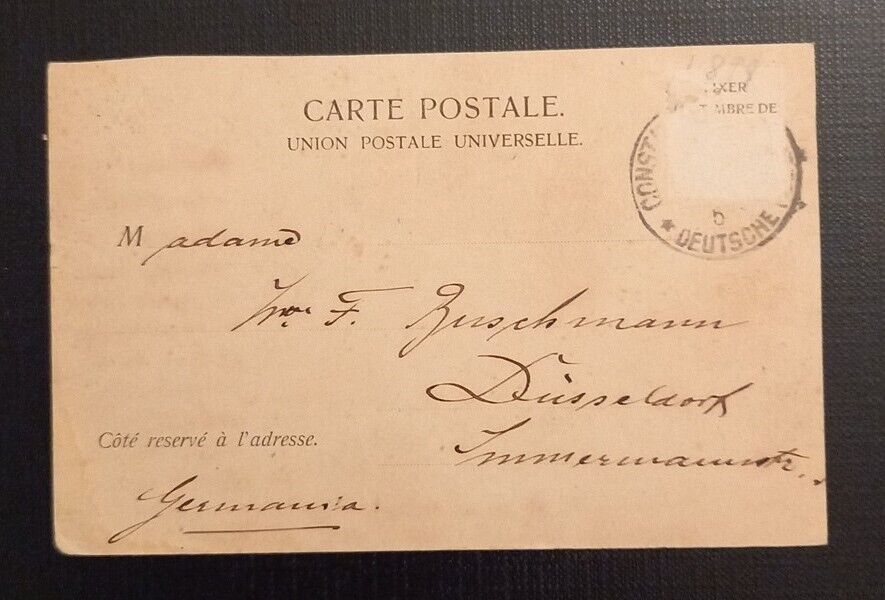 CARTE POSTALE.
UNION POSTALE UNIVERSELLE.
IXER
TIMBRE DE
CONST
b
DEUTSCHE
Madame
F. Buschmann
Düsseldorf
Immermannstr.
Côté reservé à l'adresse.
Germania.